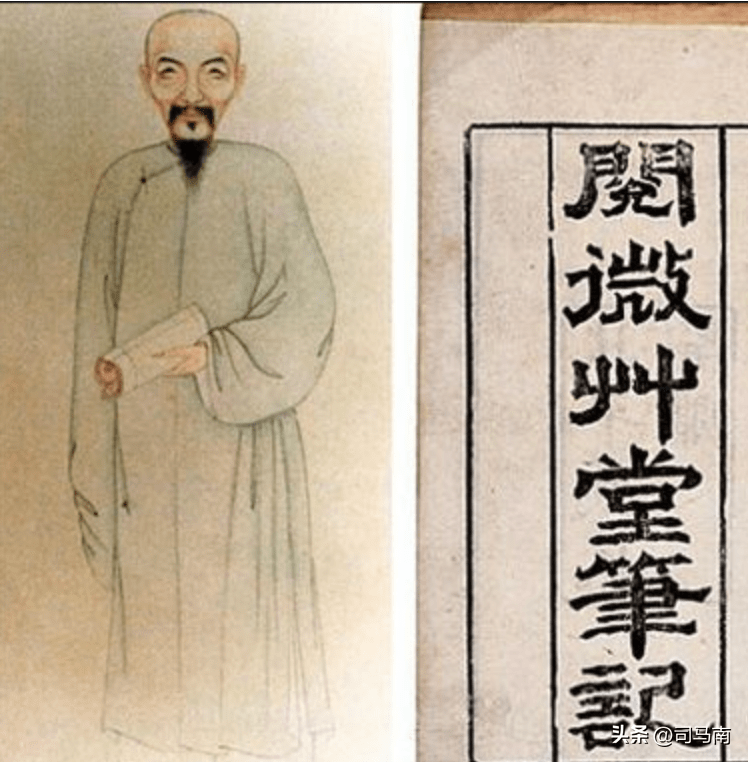 閱微艸堂筆記
头条 @司马南